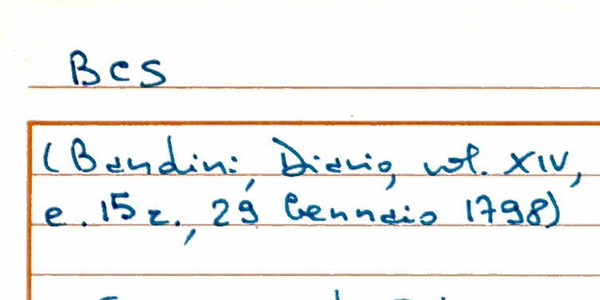 BCS
(Bandini, Diario, vol. XIV,
c. 15 r., 29 Gennaio 1798)